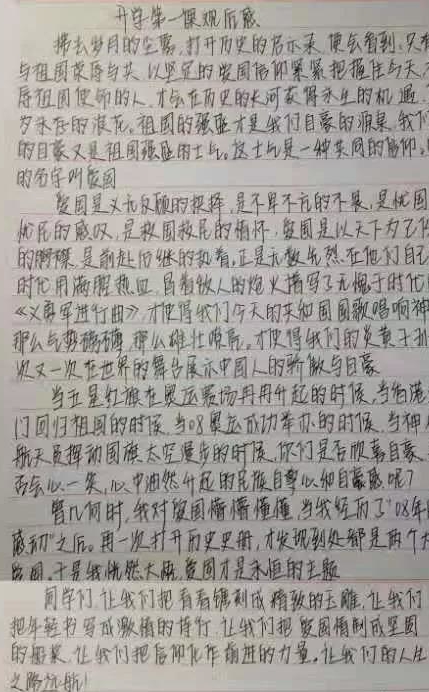 开学第一课观后感
拂去岁月的尘雾,打开历史的启示录,便会看到,只有
与祖国荣辱与共,以坚定的爱国信仰紧紧把握住与天
辱祖国使命的人,才会在历史的长河获得永生的机遇
为永存的浪花。祖国的强盛才是我们自豪的源泉,我们
的自豪又是祖国强盛的士气。这士气是一种共同的信仰。
的名字叫爱国
爱国是义无反顾的抉择,是不卑不亢的不屈,是忧国
忧民的感叹,是救国救民的情怀。爱国是以天下为己任
的胸襟,是前赴后继的执着,正是无数先烈在他们自己
时代用满腔热血,冒着敌人的炮火描写了无愧于时代
《义勇军进行曲》,才使得我们今天的共和国国歌唱响神
那么气势磅礴,那么雄壮嘹亮。才使得我们的炎黄子孙
次又一次在世界的舞台展示中国人的骄傲与自豪
当五星红旗在奥运赛场冉冉升起的时候,当香港
门回归祖国的时候,当08奥运成功举办的时候,当神
航天员挥动国旗太空漫步的时候,你们是否欣喜自豪
否会心一笑,心中油然升起的民族自尊心和自豪感呢?
曾几何时,我对爱国懵懵懂懂,当我经历了“08年
感动”之后。再一次打开历史史册,才发现到处都是两个大
爱国,于是我恍然大悟,爱国才是永恒的主题
同学们,让我们把青春镌刻成精致的玉雕,让我们
把年轻书写成激情的诗行,让我们把爱国情制成坚固
的船桨,让我们把信仰化作前进的力量,让我们的人生
之路远航!